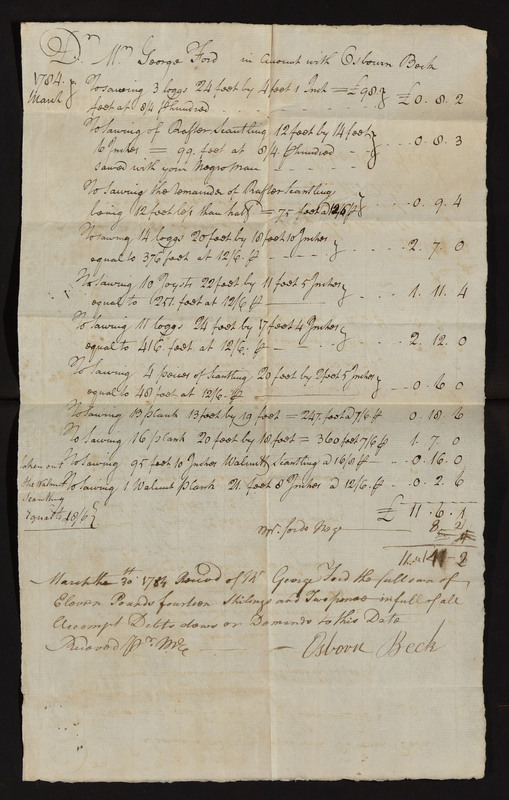 Dr. Mr. George Ford in Account with Osbourn Beck
1784
March
To sawing 3 loggs 24 feet by 4 feet 1 Inch = 98
feet at 8/4 hundred £ 0. 8. 2
To Sawing of Rafter Scantling 12 feet by 14 feet
6 Inches = 99 feet at 8/4 hundred 0. 8. 3
sawed with your Negro man
To Sawing the remainder of Rafter Scantling
being 12 feet less than half = 75 feet a 12/6 0. 9. 4
To sawing 14 loggs 20 feet by 18 feet 10 Inches
equal to 376 feet at 12/6 2. 7. 0
To Sawing 10 Joysts 22 feet by 11 feet 5 Inches
equal to 251 feet at 12/6 1. 11. 4
To Sawing 11 loggs 24 feet by 17 feet 4 Inches
equal to 416 feet at 12/6 2. 12. 0
To Sawing 4 pieces of Scantling 20 feet by 2 feet 5 Inches
equal to 48 feet at 12/6 0. 6. 0
To sawing 13 plank 13 feet by 19 feet = 247 feet a 7/6 0. 18. 6
To Sawing 16 plank 20 feet by 18 feet = 360 feet 7/6 1. 7. 0
To Sawing 95 feet 10 Inches Walnut Scantling a 16/8 0. 16. 0
To Sawing 1 Walnut Plank 21 feet 8 Inches a 12/6 0. 2. 6
taken out
the Walnut
Scantling
equal to 18/6
£ 11. 6. 1
Mr. Fords 8
11 14 2
March the 30th 1784 Received of Mr George Ford the full sum of
Eleven Pounds fourteen Shilings and Two pence in full of all
Accompt Debts dews or Demands to this Date
Received Pr. Me
Osborn Beck